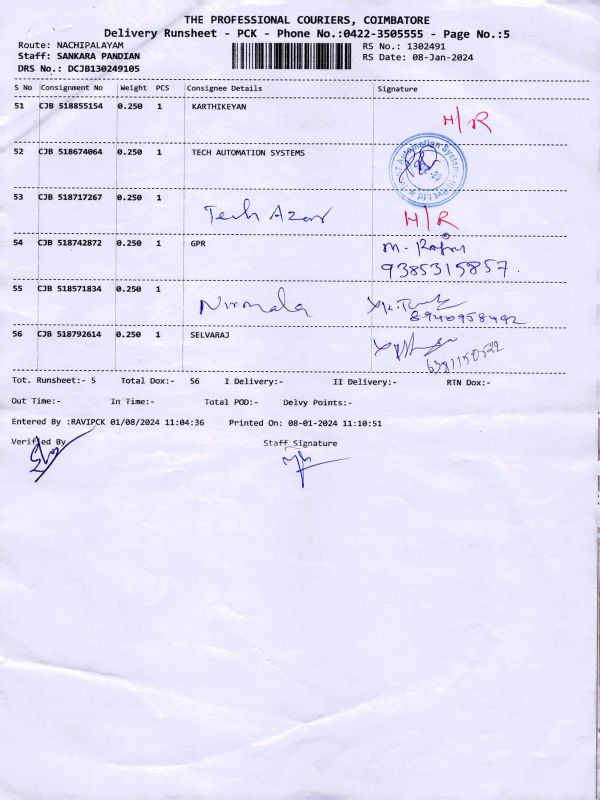 THE PROFESSIONAL COURIERS, COIMBATORE
Delivery Runsheet - PCK - Phone No.:0422-3505555 - Page No.:5
Route: NACHIPALAYAM RS No.: 1302491
Staff: SANKARA PANDIAN RS Date: 08-Jan-2024
DRS No.: DCJB130249105
S No Consignment No Weight PCS Consignee Details Signature
51 CJB 518855154 0.250 1 KARTHIKEYAN H/R
52 CJB 518674064 0.250 1 TECH AUTOMATION SYSTEMS
53 CJB 518717267 0.250 1 Tech Azar H/R
54 CJB 518742872 0.250 1 GPR
9385315857.
55 CJB 518571834 0.250 1 Nirmala
8940958492
56 CJB 518792614 0.250 1 SELVARAJ
Tot. Runsheet:- 5 Total Dox:- 56 I Delivery:- II Delivery:- RTN Dox:-
Out Time:- In Time:- Total POD:- Delvy Points:-
Entered By :RAVIPCK 01/08/2024 11:04:36 Printed On: 08-01-2024 11:10:51
Verified By Staff Signature